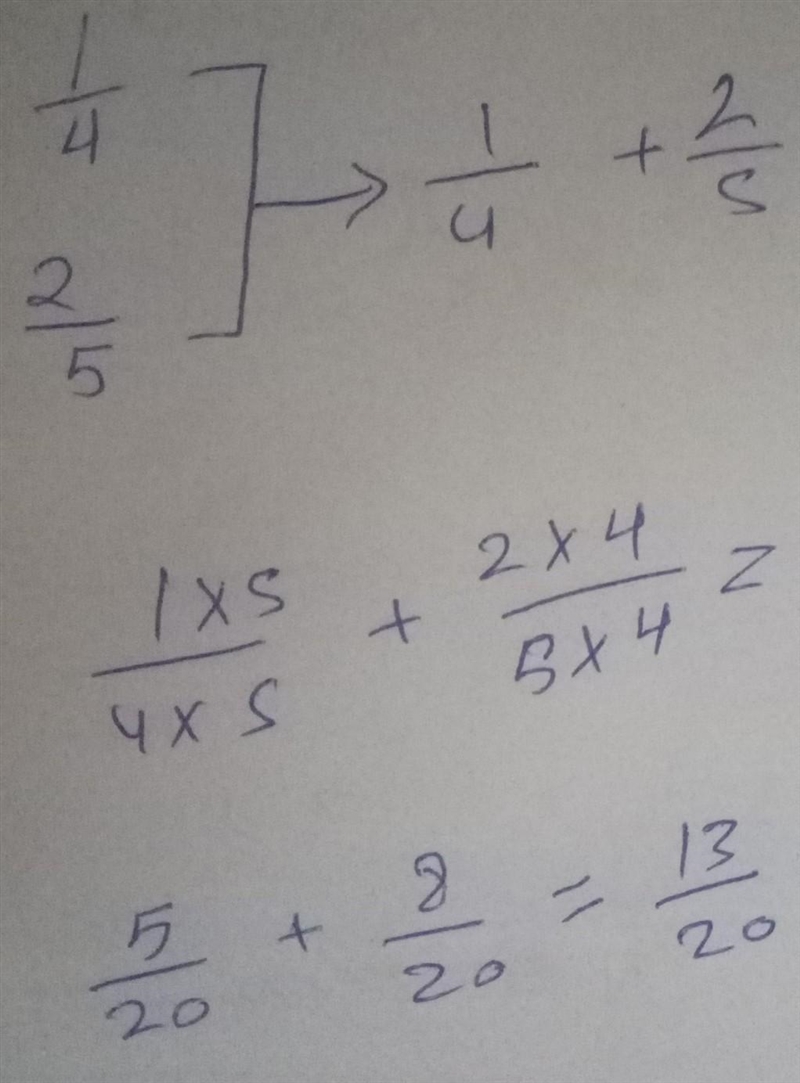 1/4
→ 1/4 + 2/5
2/5
1×5/4×5 + 2×4/5×4 =
5/20 + 8/20 = 13/20